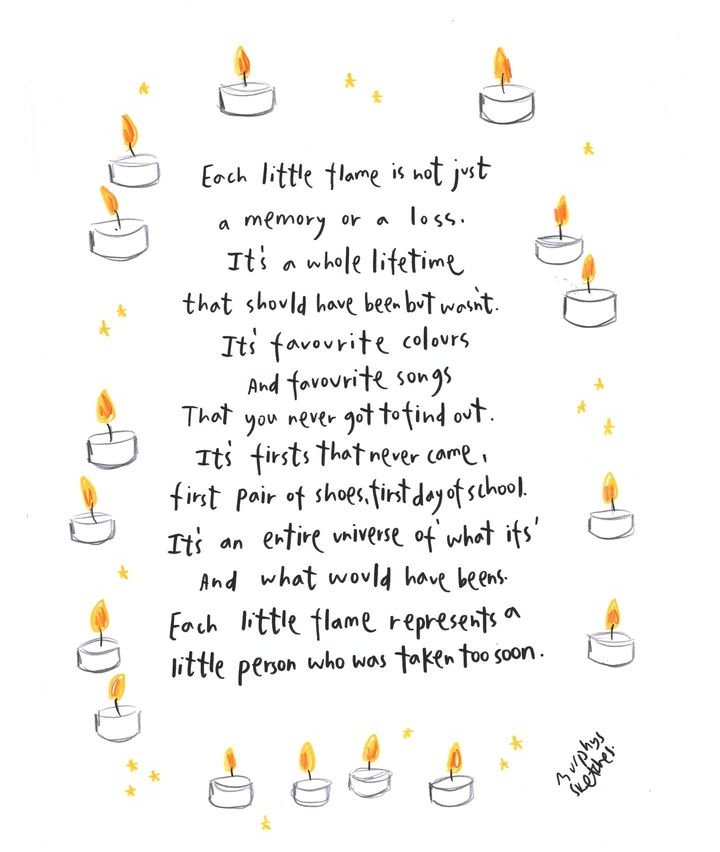 Each little flame is not just
a memory or a loss.
It's a whole lifetime
that should have been but wasn't.
It's favourite colours
And favourite songs
That you never got to find out.
It's firsts that never came,
first pair of shoes, first day of school.
It's an entire universe of 'what ifs'
And what would have beens.
Each little flame represents a
little person who was taken too soon.
Murphys
sketches.